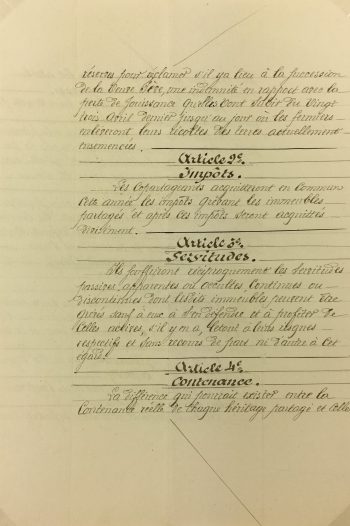 réserves pour réclamer s'il y a lieu à la succession
de la Veuve Sère, une indemnité en rapport avec la
perte de jouissance qu'elles ont subit du vingt
trois avril dernier jusqu'au jour où les fermiers
enlèveront leurs récoltes des terres actuellement
ensemencées.
Article 2e.
Impôts.
Les copartageants acquitteront en commun
cette année les impôts grévant les immeubles
partagés et après ces impôts seront acquittés
divisément.
Article 3e.
Servitudes.
Ils souffriront réciproquement les servitudes
passives, apparentes ou occultes, continues ou
discontinues dont lesdits immeubles peuvent être
grevés sauf à eux à s'en défendre et à profiter de
celles actives, s'il y en a, le tout à leurs risques
respectifs et sans recours de part ni d'autre à cet
égard.
Article 4e.
Contenance.
La différence qui pourrait exister entre la
Contenance réelle de chaque héritage partagé et celle